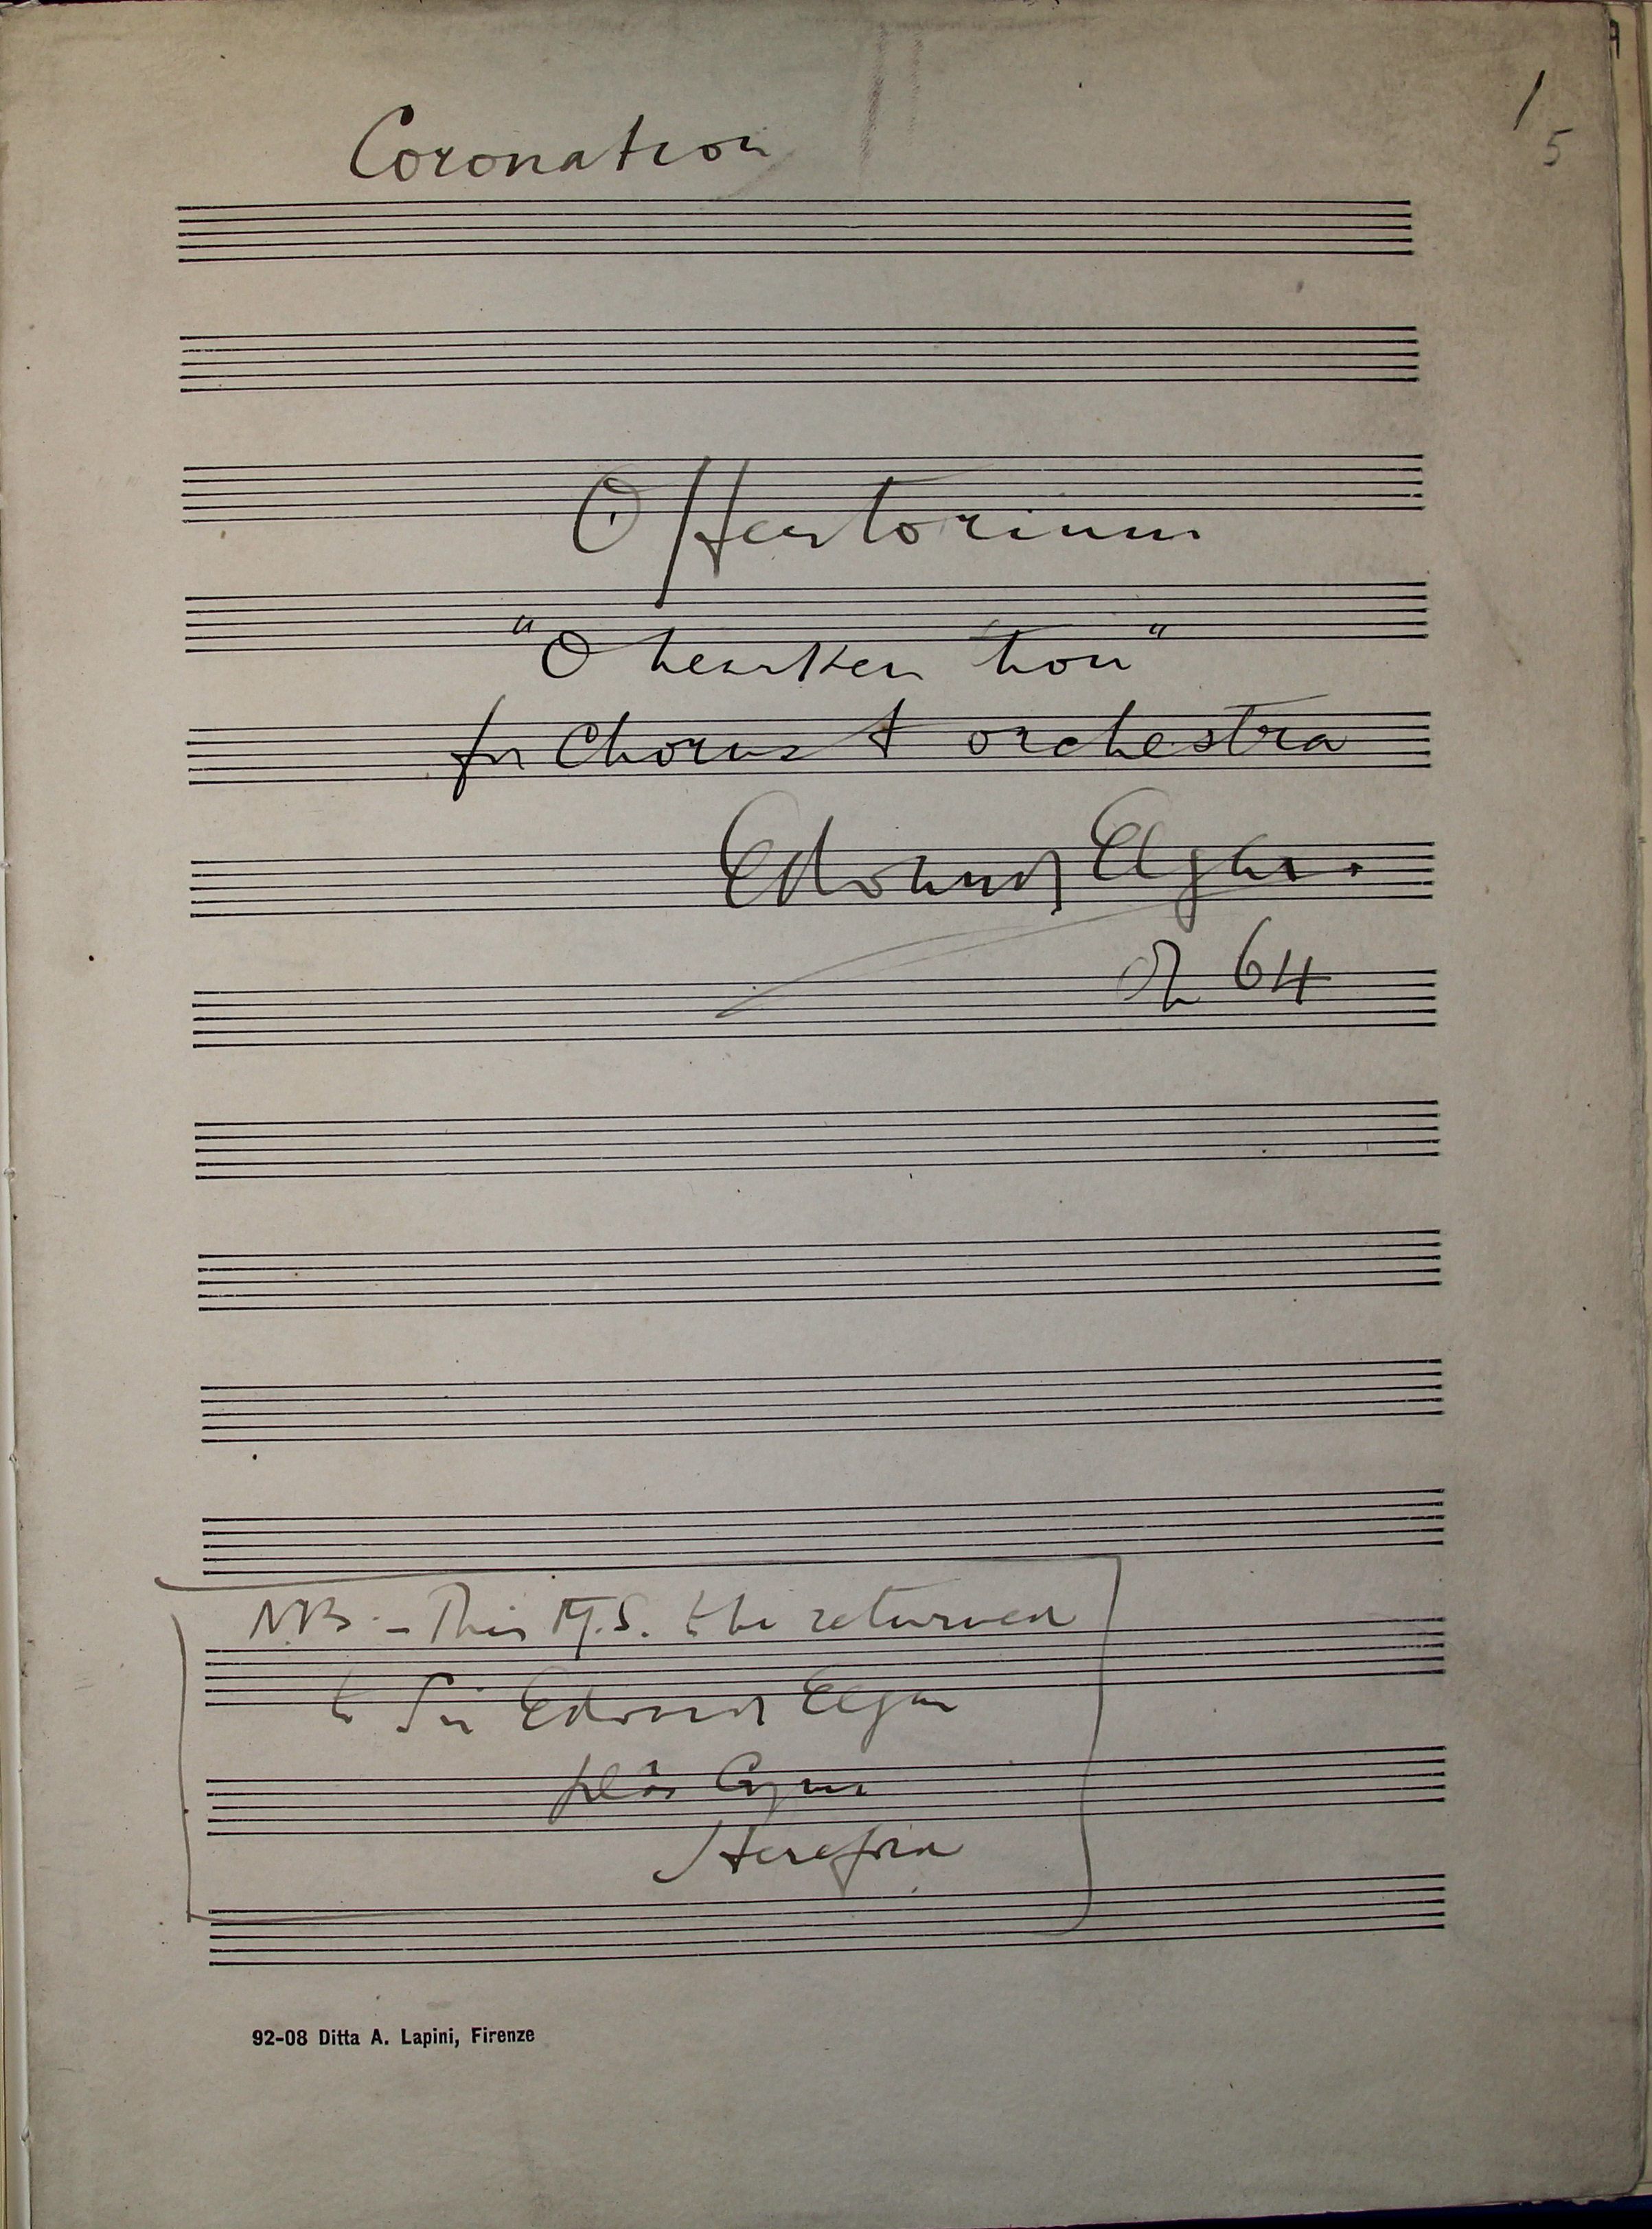 1
5
Coronation
Offertorium
"O hearken thou"
for Chorus & orchestra
Edward Elgar.
Op 64
NB – This M.S. to be returned
to Sir Edward Elgar
plâs Gwyn
Hereford
92-08 Ditta A. Lapini, Firenze